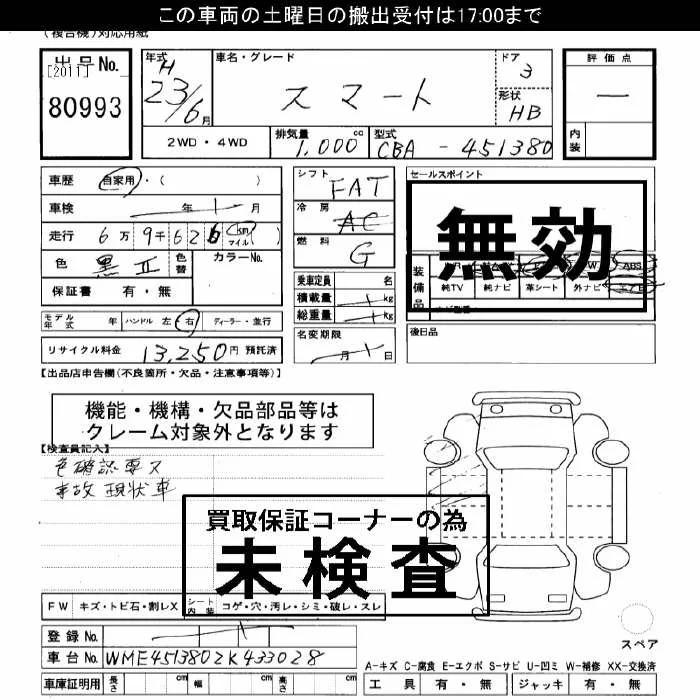 この車両の土曜日の搬出受付は17:00まで
(複合機)対応用紙
出品No.
[2011]
80993
年式
H
23/6月
車名・グレード
スマート
ドア
3
形状
HB
評価点
内装
2WD・4WD
排気量
1,000cc
型式
CBA-451380
車歴
自家用・( )
車検
年 月
走行
6万9千626 km マイル( )
色
黒II
色替
カラーNo.
保証書 有・無
モデル年式 年
ハンドル 左 右
ディーラー・並行
リサイクル料金
13,250円 預託済
シフト
FAT
冷房
AC
燃料
G
乗車定員 名
積載量 kg
総重量 kg
名変期限
月 日
セールスポイント
無効
装備品
ABS
純TV
純ナビ
革シート
外ナビ
後日品
【出品店申告欄(不良箇所・欠品・注意事項等)】
機能・機構・欠品部品等は
クレーム対象外となります
【検査員記入】
色確認要ス
事故現状車
買取保証コーナーの為
未検査
FW
キズ・トビ石・割レX
シート内装
コゲ・穴・汚レ・シミ・破レ・スレ
登録No.
車台No.
WME4513802K433028
車庫証明用
長さ cm
幅 cm
高さ cm
スペア
A-キズ C-腐食 E-エクボ S-サビ U-凹ミ W-補修 XX-交換済
工具 有・無
ジャッキ 有・無